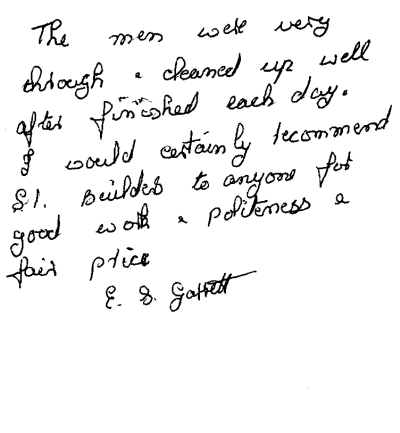 The men were very
through & cleaned up well
after finished each day.
I would certainly recommend
S1. Builders to anyone for
good work & politeness &
fair price
E. S. Garrett